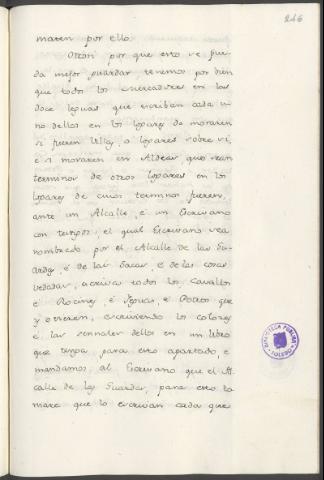 246
maren por ello.
Otrosi por que esto se pue-
da mejor guardar tenemos por bien
que todos los mercadores en las
doce leguas que escriban cada u-
no dellos en los logares do moraren
si fueren Villas, o logares sobre si,
e si moraren en Aldeas que sean
terminos de otros logares en los
logares de cuios terminos fueren,
ante un Alcalle, e un Escrivano
con testigos, el qual Escrivano sea
nombrado por el Alcalle de las Gu-
ardas, é de las Sacas, é de las cosas
vedadas, a escriva todos los Cavallos
é Rocines é Yeguas, é Potros que
y ovieren, escriviendo los colores
é las sennales dellos en un libro
que tenga para esto apartado, e
mandamos al Escrivano que el Al-
calle de las Guardas, para esto to-
mare que lo escrivan cada que
BIBLIOTECA PUBLICA
TOLEDO